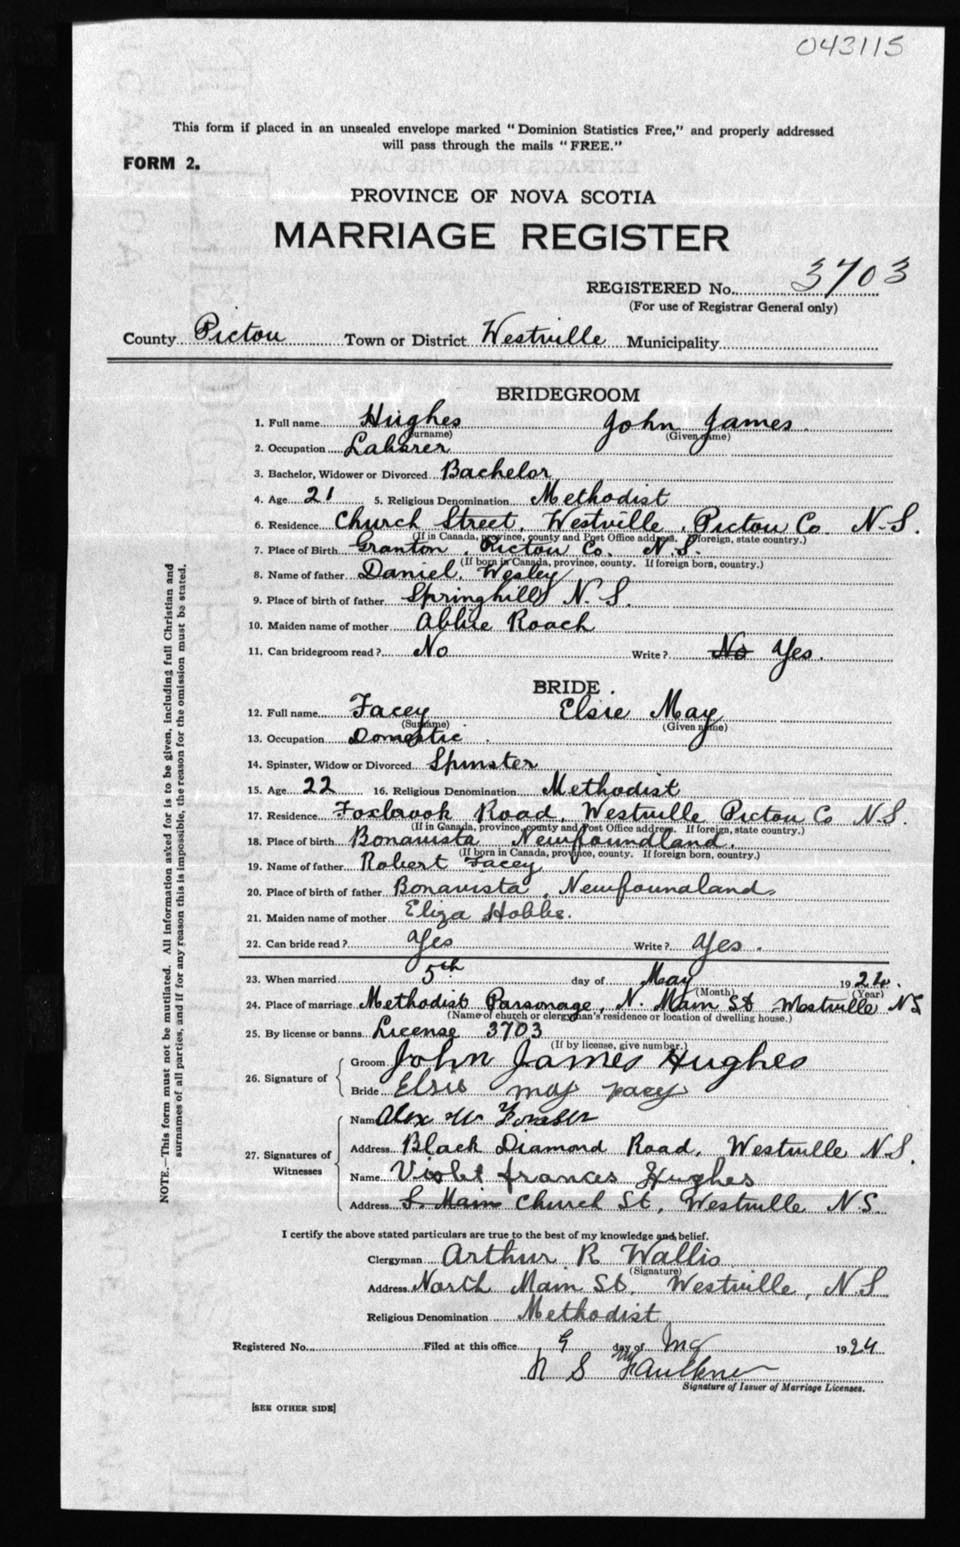 043115
This form if placed in an unsealed envelope marked "Dominion Statistics Free," and properly addressed
will pass through the mails "FREE."
FORM 2.
PROVINCE OF NOVA SCOTIA
MARRIAGE REGISTER
REGISTERED No. 3703
(For use of Registrar General only)
County Pictou Town or District Westville Municipality
BRIDEGROOM
1. Full name Hughes John James.
(Surname) (Given name)
2. Occupation Laborer
3. Bachelor, Widower or Divorced Bachelor
4. Age 21 5. Religious Denomination Methodist
6. Residence Church Street, Westville, Pictou Co N.S.
(If in Canada, province, county and Post Office address. If foreign, state country.)
7. Place of Birth Granton, Pictou Co. N.S.
(If born in Canada, province, county. If foreign born, country.)
8. Name of father Daniel Wesley
9. Place of birth of father Springhill N.S.
10. Maiden name of mother Abbie Roach
11. Can bridegroom read? No Write? No Yes.
BRIDE.
12. Full name Facey Elsie May
(Surname) (Given name)
13. Occupation Domestic.
14. Spinster, Widow or Divorced Spinster
15. Age 22 16. Religious Denomination Methodist
17. Residence Foxbrook Road, Westville Pictou Co N.S.
(If in Canada, province, county and Post Office address. If foreign, state country.)
18. Place of birth Bonavista Newfoundland.
(If born in Canada, province, county. If foreign born, country.)
19. Name of father Robert Facey
20. Place of birth of father Bonavista, Newfoundland
21. Maiden name of mother Eliza Hobbs.
22. Can bride read? Yes Write? Yes.
23. When married 5th day of May 1924.
(Month) (Year)
24. Place of marriage Methodist Parsonage, N. Main St Westville NS
(Name of church or clergyman's residence or location of dwelling house.)
25. By license or banns License 3703
(If by license, give number.)
26. Signature of
Groom John James Hughes
Bride Elsie may Facey
27. Signatures of Witnesses
Name Alex W Fraser
Address Black Diamond Road, Westville N.S.
Name Violet frances Hughes
Address S. Main Church St, Westville N.S.
I certify the above stated particulars are true to the best of my knowledge and belief.
Clergyman Arthur R Wallis
(Signature)
Address North Main St, Westville, N.S
Religious Denomination Methodist
Registered No. Filed at this office 9 day of May 1924
N S Faulkner
Signature of Issuer of Marriage Licenses.
[SEE OTHER SIDE]
NOTE.—This form must not be mutilated. All information asked for is to be given, including full Christian and
surnames of all parties, and if for any reason this is impossible, the reason for the omission must be stated.